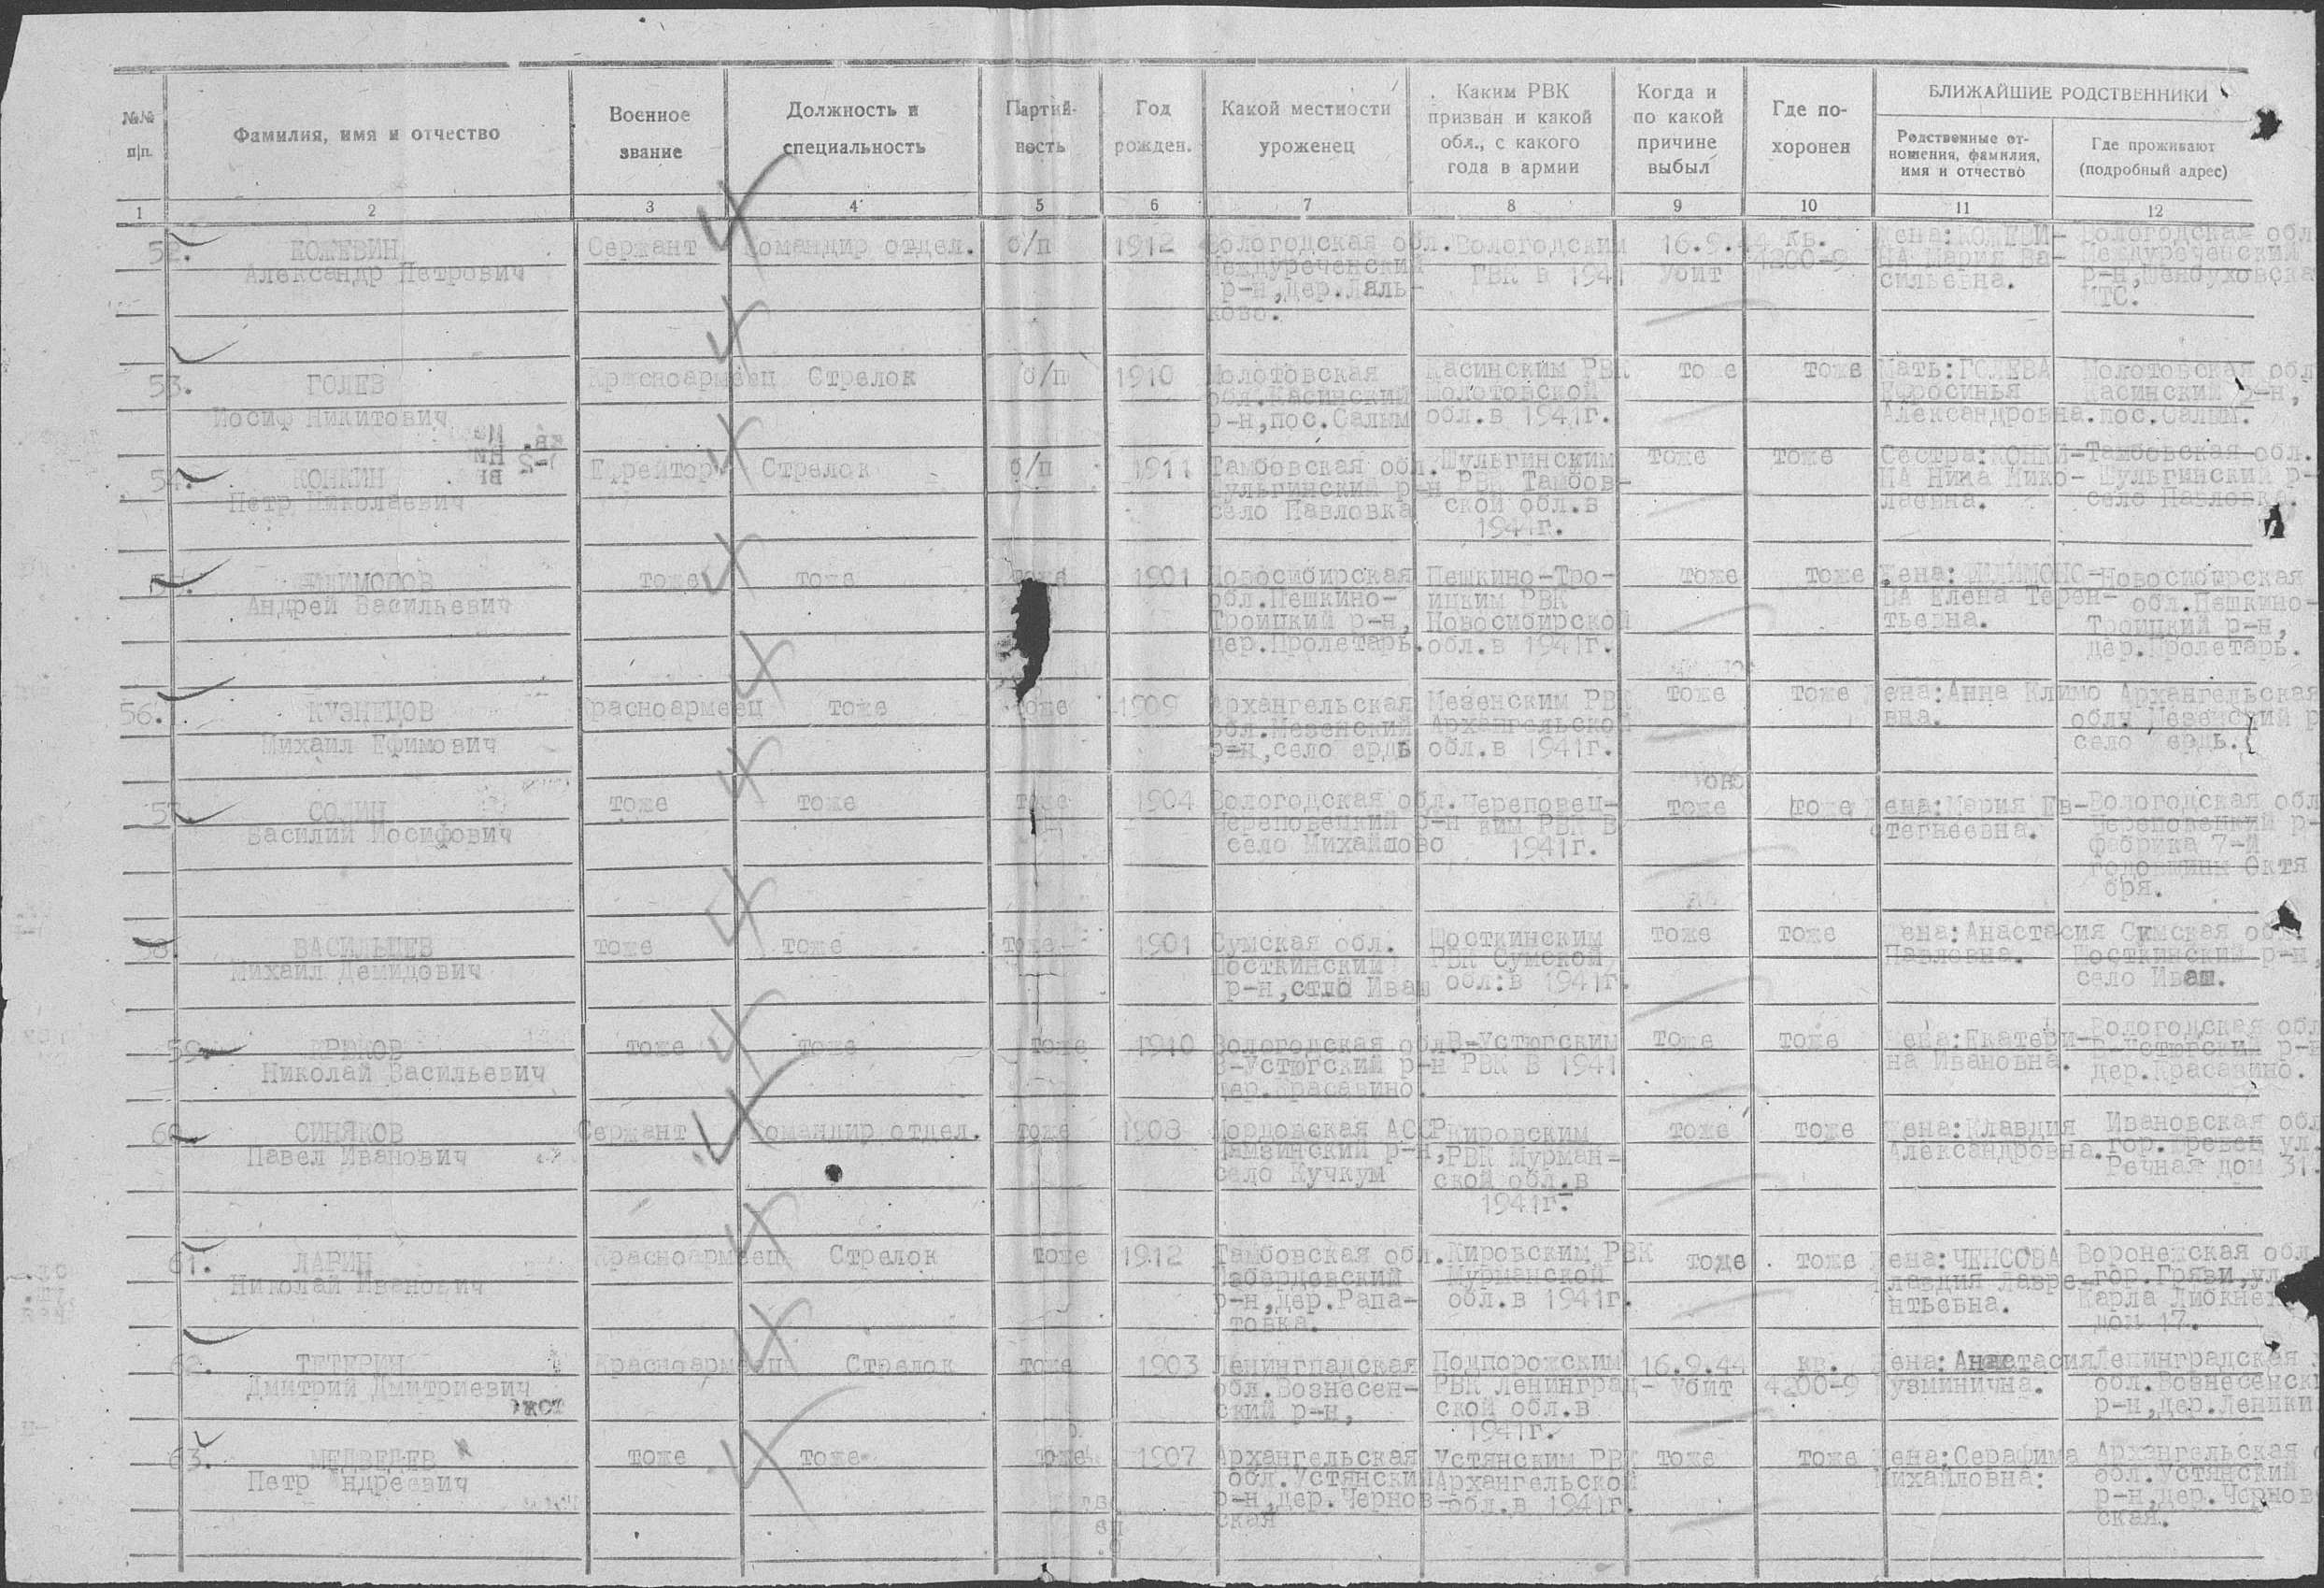 №№ п|п.
Фамилия, имя и отчество
Военное звание
Должность и специальность
Партий-ность
Год рожден.
Какой местности уроженец
Каким РВК призван и какой обл., с какого года в армии
Когда и по какой причине выбыл
Где по-хоронен
БЛИЖАЙШИЕ РОДСТВЕННИКИ
Родственные от-ношения, фамилия, имя и отчество
Где проживают (подробный адрес)
1 2 3 4 5 6 7 8 9 10 11 12
52. КОЖЕВИН Сержант Командир отдел. б/п 1912 Вологодская обл. Вологодским 16.9.44 кв. Жена: КОЖЕВИ- Вологодская обл
Александр Петрович Междуреченский РВК в 1941 Убит 4200-9 НА Мария Ва- Междуреченский
р-н, дер. Ляль- сильевна. р-н,
ково. МТС.
53. ГОЛЕВ Красноармеец Стрелок б/п 1910 Молотовская Касинским РВК тоже тоже Мать: ГОЛЕВА Молотовская обл
обл. Касинский Молотовской Ефросинья Касинский р-н,
Иосиф Никитович р-н, пос. Салым обл. в 1941г. Александровна. пос. Салым.
54. КОНКИН Ефрейтор Стрелок б/п 1911 Тамбовская обл. Шульгинским тоже тоже Сестра: КОНКИ- Тамбовская обл.
Петр Николаевич Шульгинский р-н РВК Тамбов- НА Нина Нико- Шульгинский р-
село Павловка ской обл. в лаевна. село Павловка.
1941г.
55. ФИЛИМОНОВ тоже тоже тоже 1901 Новосибирская Пешкино-Тро- тоже тоже Жена: ФИЛИМОНО- Новосибирская
Андрей Васильевич обл. Пешкино- ицким РВК ВА Елена Терен- обл. Пешкино-
Троицкий р-н, Новосибирской тьевна. Троицкий р-н,
дер. Пролетарь. обл. в 1941г. дер. Пролетарь.
56. КУЗНЕЦОВ Красноармеец тоже тоже 1909 Архангельская Мезенским РВК тоже тоже Жена: Анна Климо Архангельская
обл. Мезенский Архангельской вна. Мезенский р
Михаил Ефимович р-н, село ердь обл. в 1941г. село ердь.
57. СОДИН тоже тоже тоже 1904 Вологодская обл. Череповец- тоже тоже Жена: Мария Ев- Вологодская обл
Василий Иосифович Череповецкий р-н ким РВК в стегнеевна. Череповецкий р-
село Михайлово 1941г. фабрика 7-й
годовщины Октя
бря.
58. ВАСИЛЬЦЕВ тоже тоже тоже 1901 Сумская обл. Шосткинским тоже тоже Жена: Анастасия Сумская обл.
Михаил Демидович Шосткинский РВК Сумской Павловна. Шосткинский р-н,
р-н, стло Иваш обл: в 1941г. село Иваш.
59. КРЮКОВ тоже тоже тоже 1910 Вологодская обл. В-Устюгским тоже тоже Жена: Екатери- Вологодская обл
Николай Васильевич В-Устюгский р-н РВК в 1941 на Ивановна. В-Устюгский р-н
дер. Красавино. дер. Красавино.
60. СИНЯКОВ Сержант Командир отдел. тоже 1908 Мордовская АССР Кировским тоже тоже Жена: Клавдия Ивановская обл
Павел Иванович р-н, РВК Мурман- Александровна. гор. ул.
село Кучкум ской обл. в Речная дом 31.
1941г.
61. ЛАРИН Красноармеец Стрелок тоже 1912 Тамбовская обл. Кировским РВК тоде тоже Жена: ЧЕНСОВА Воронежская обл.
Николай Иванович Мурманской Клавдия Лавре- гор. Грязи, ул.
р-н, дер. Рапа- обл. в 1941г. нтьевна. Карла Либкнех
товка. дом 17.
62. ТЕТЕРИН Красноармеец Стрелок тоже 1903 Ленингпадская Подпорожским 16.9.44 кв. Жена: Анастасия Ленинградская
Дмитрий Дмитриевич обл. Вознесен- РВК Ленинград- Убит 4200-9 Кузминична. обл. Вознесенски
ский р-н, ской обл. в р-н, дер. Леники
1941г.
63. МЕДВЕДЕВ тоже тоже тоже 1907 Архангельская Устянским РВК тоже тоже Жена: Серафима Архангельская
Петр Андреевич обл. Устянский Архангельской Михайловна: обл. Устянский
р-н, дер. Чернов- обл. в 1941г. р-н, дер. Чернов
ская ская.